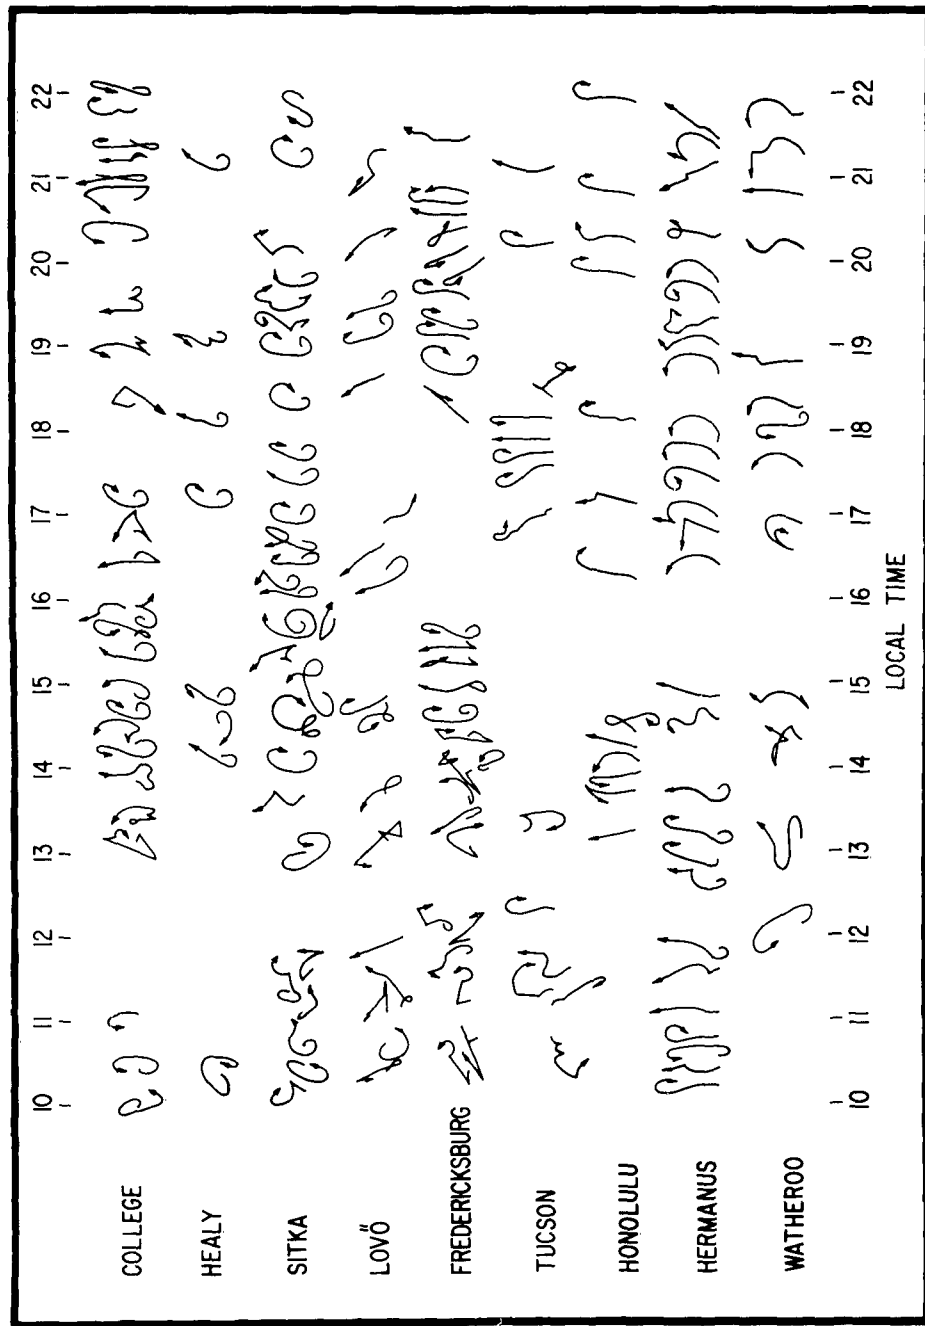 10 11 12 13 14 15 16 17 18 19 20 21 22
COLLEGE
HEALY
SITKA
LOVÖ
FREDERICKSBURG
TUCSON
HONOLULU
HERMANUS
WATHEROO
10 11 12 13 14 15 16 17 18 19 20 21 22
LOCAL TIME